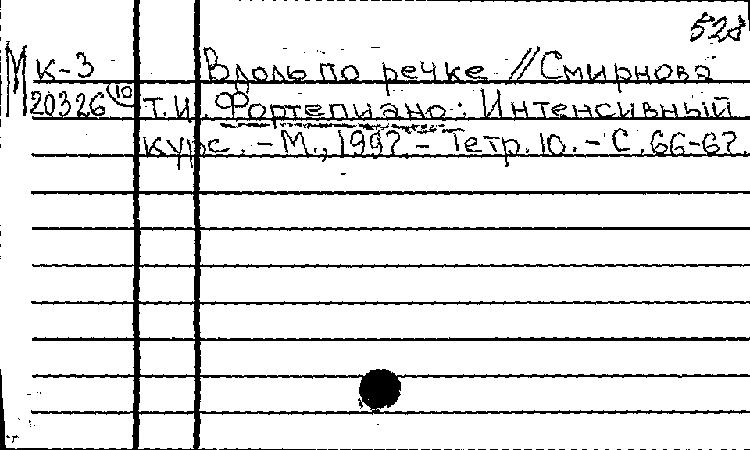 528
М К-3 Вдоль по речке // Смирнова
20326 (10) Т.И. Фортепиано: Интенсивный
курс. - М., 1997. - Тетр. 10. - С. 66-67.